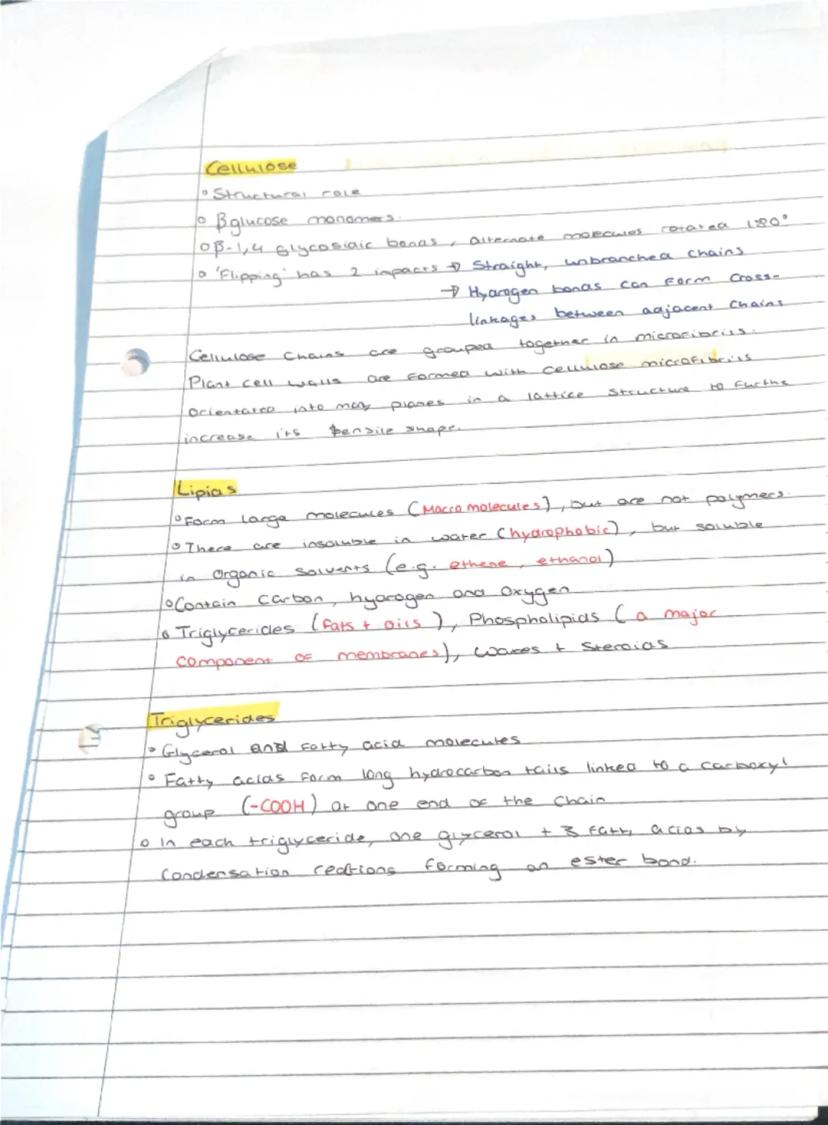 Cellulose
° Structural role
° βglucose monomers.
° β-1,4 Glycosidic bonds, alternate molecules rotated 180°
° 'Flipping' has 2 impacts → Straight, unbranched chains
→ Hydrogen bonds can form cross-
linkages between adjacent chains
Cellulose Chains are grouped together in microfibrils.
Plant cell walls are formed with cellulose microfibrils
orientated into many planes in a lattice structure to furthe
increase its tensile shape.
Lipids
° Form large molecules (Macro molecules), but are not polymers.
° There are insoluble in water (hydrophobic), but soluble
in organic solvents (e.g. ethene, ethanol)
° Contain Carbon, hydrogen and Oxygen
° Triglycerides (fats + oils), Phospholipids (a major
component of membranes), waxes + Steroids
Triglycerides
° Glycerol and fatty acid molecules
° Fatty acids form long hydrocarbon tails linked to a carboxyl
group (-COOH) at one end of the chain
° In each triglyceride, one glycerol + 3 fatty acids by
condensation reactions forming an ester bond.